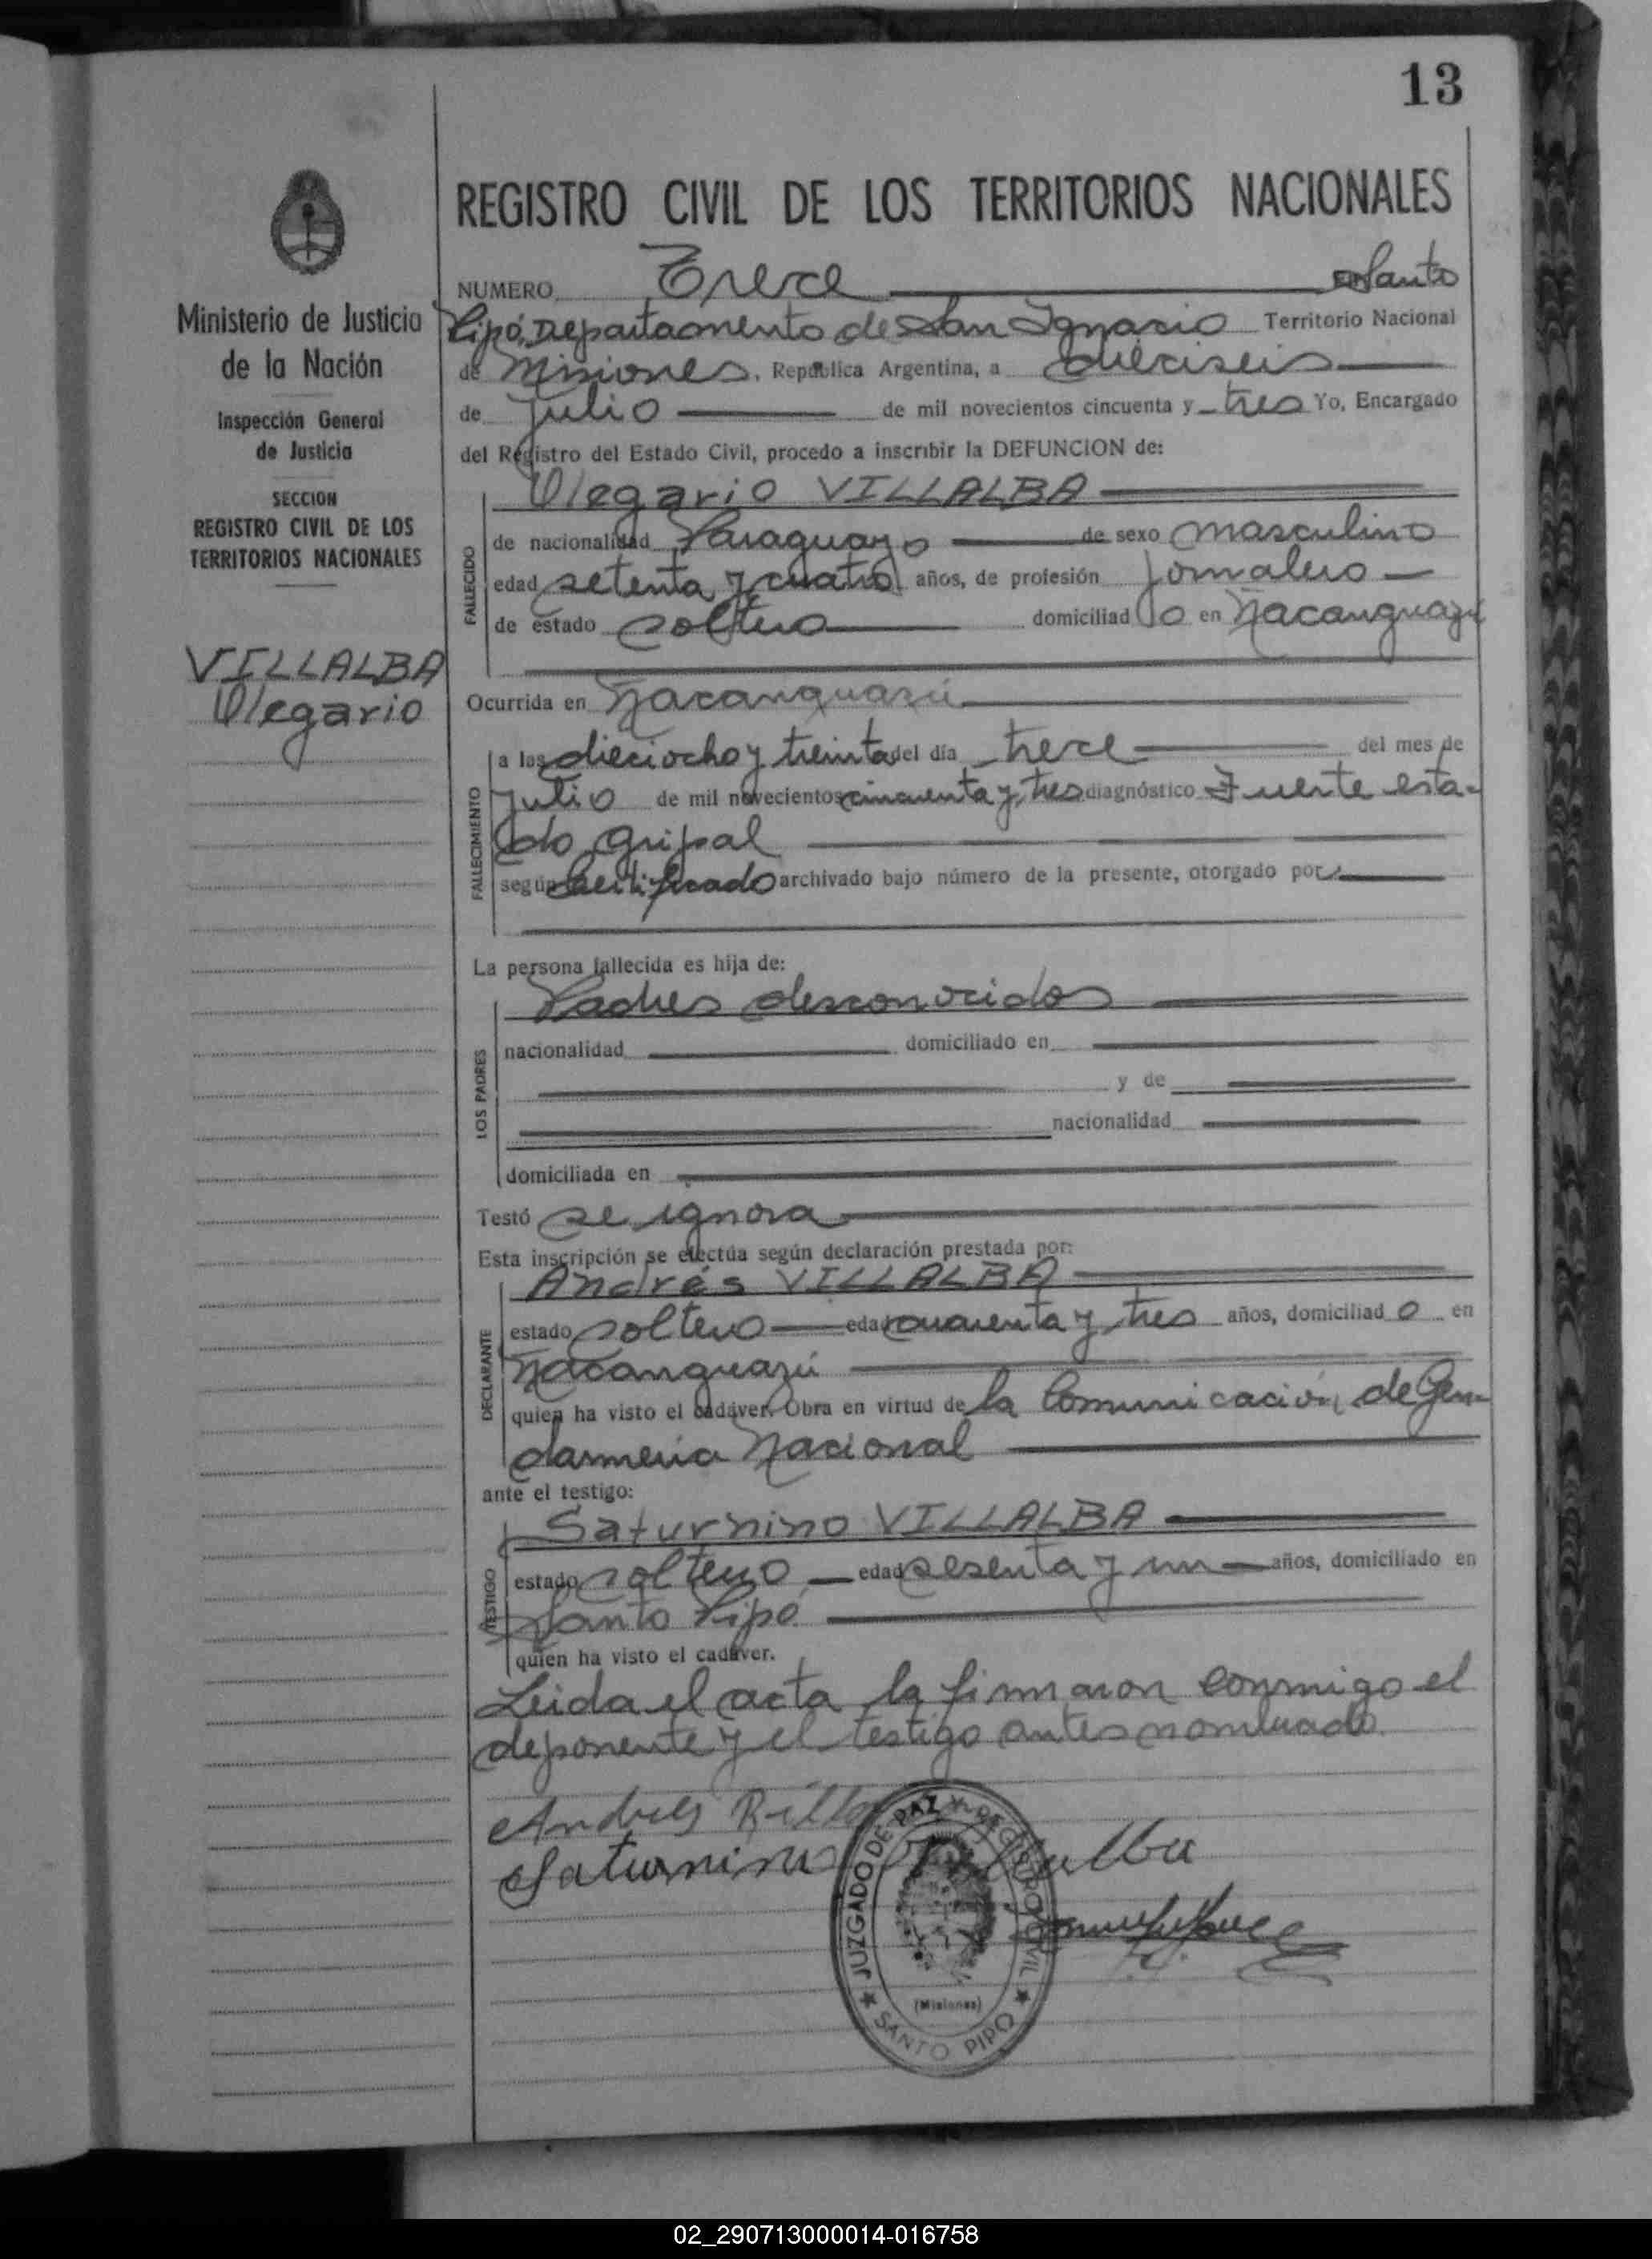 13
Ministerio de Justicia
de la Nación
Inspección General
de Justicia
SECCION
REGISTRO CIVIL DE LOS
TERRITORIOS NACIONALES
VILLALBA
Olegario
REGISTRO CIVIL DE LOS TERRITORIOS NACIONALES
NUMERO Trece en Santo
Pipó, Departamento de San Ignacio Territorio Nacional
de Misiones, República Argentina, a dieciseis
de Julio de mil novecientos cincuenta y tres Yo, Encargado
del Registro del Estado Civil, procedo a inscribir la DEFUNCION de:
FALLECIDO
Olegario VILLALBA
de nacionalidad Paraguayo de sexo masculino
edad setenta y cuatro años, de profesión Jornalero
de estado soltero domiciliado en Ñacanguazú
Ocurrida en Ñacanguazú
FALLECIMIENTO
a las dieciocho y treinta del día trece del mes de
Julio de mil novecientos cincuenta y tres diagnóstico Fuerte esta-
do gripal
según Certificado archivado bajo número de la presente, otorgado por
La persona fallecida es hija de:
LOS PADRES
Padres desconocidos
nacionalidad domiciliado en
y de
nacionalidad
domiciliada en
Testó se ignora
Esta inscripción se efectúa según declaración prestada por:
DECLARANTE
Andrés VILLALBA
estado soltero edad cuarenta y tres años, domiciliado en
Ñacanguazú
quien ha visto el cadáver. Obra en virtud de la Comunicación de Gen-
darmeria Nacional
ante el testigo:
TESTIGO
Saturnino VILLALBA
estado soltero edad sesenta y un años, domiciliado en
Santo Pipó
quien ha visto el cadáver.
Leida el acta la firmaron conmigo el
deponente y el testigo antes nombrado.
Andres
Saturnino
JUZGADO DE PAZ Y REGISTRO CIVIL
(Misiones)
SANTO PIPO
02_290713000014-016758